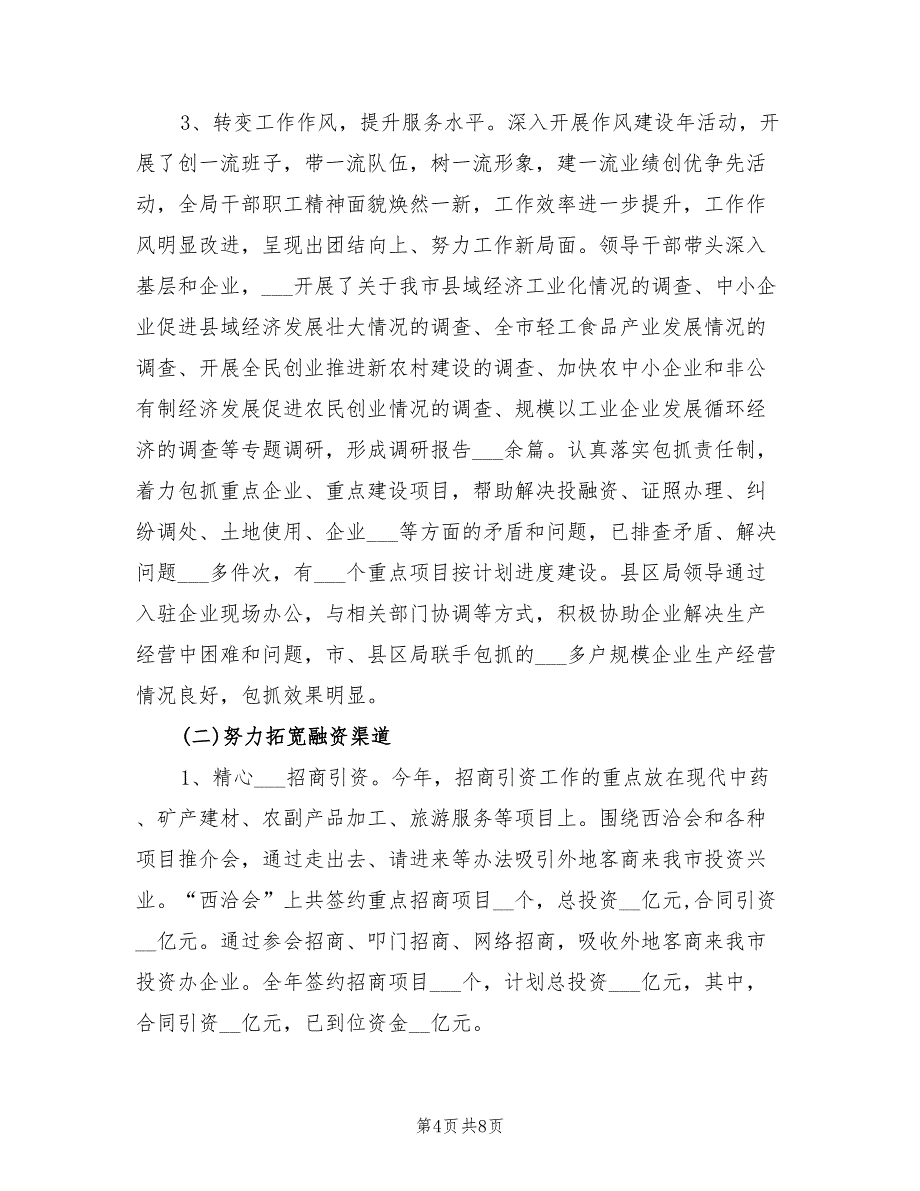 3、转变工作作风，提升服务水平。深入开展作风建设年活动，开
展了创一流班子，带一流队伍，树一流形象，建一流业绩创优争先活
动，全局干部职工精神面貌焕然一新，工作效率进一步提升，工作作
风明显改进，呈现出团结向上、努力工作新局面。领导干部带头深入
基层和企业，___开展了关于我市县域经济工业化情况的调查、中小企
业促进县域经济发展壮大情况的调查、全市轻工食品产业发展情况的
调查、开展全民创业推进新农村建设的调查、加快农中小企业和非公
有制经济发展促进农民创业情况的调查、规模以工业企业发展循环经
济的调查等专题调研，形成调研报告___余篇。认真落实包抓责任制，
着力包抓重点企业、重点建设项目，帮助解决投融资、证照办理、纠
纷调处、土地使用、企业___等方面的矛盾和问题，已排查矛盾、解决
问题___多件次，有___个重点项目按计划进度建设。县区局领导通过
入驻企业现场办公，与相关部门协调等方式，积极协助企业解决生产
经营中困难和问题，市、县区局联手包抓的___多户规模企业生产经营
情况良好，包抓效果明显。
(二)努力拓宽融资渠道
1、精心___招商引资。今年，招商引资工作的重点放在现代中药
、矿产建材、农副产品加工、旅游服务等项目上。围绕西洽会和各种
项目推介会，通过走出去、请进来等办法吸引外地客商来我市投资兴
业。“西洽会”上共签约重点招商项目__个，总投资__亿元,合同引资
__亿元。通过参会招商、叩门招商、网络招商，吸收外地客商来我市
投资办企业。全年签约招商项目___个，计划总投资___亿元，其中，
合同引资__亿元，已到位资金__亿元。
第4页 共8页